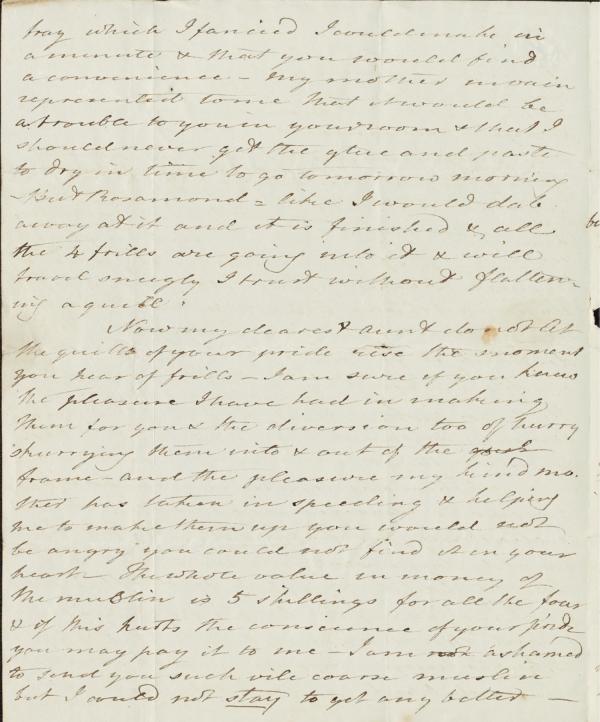 tray which I fancied I could make in
a minute & that you would find
a convenience – My mother in vain
represented to me that it would be
a trouble to you in your room & that I
should never get the glue and paste
to dry in time to go tomorrow morning
– But Rosamond = like I would dab
away at it and it is finished & all
the 4 frills are going into it & will
travel snugly I trust without flatten-
ing a quill.
Now my dearest aunt do not let
the quills of your pride rise the moment
you hear of frills – I am sure if you knew
the pleasure I have had in making
them for you & the diversion too of hurry
skurrying them into & out of the
frame – and the pleasure my kind mo-
ther has taken in speeding & helping
me to make them up you would not
be angry you could not find it in your
heart – The whole value in money of
the muslin is 5 shillings for all the four
& if this hurts the conscience of your pride
you may pay it to me – I am ashamed
to send you such vile coarse muslin
but I could not stay to get any better –